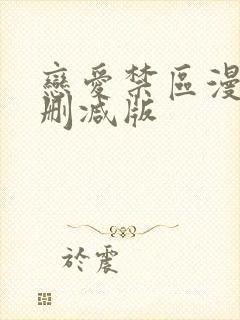 戀愛禁區漫
刪減版
於震